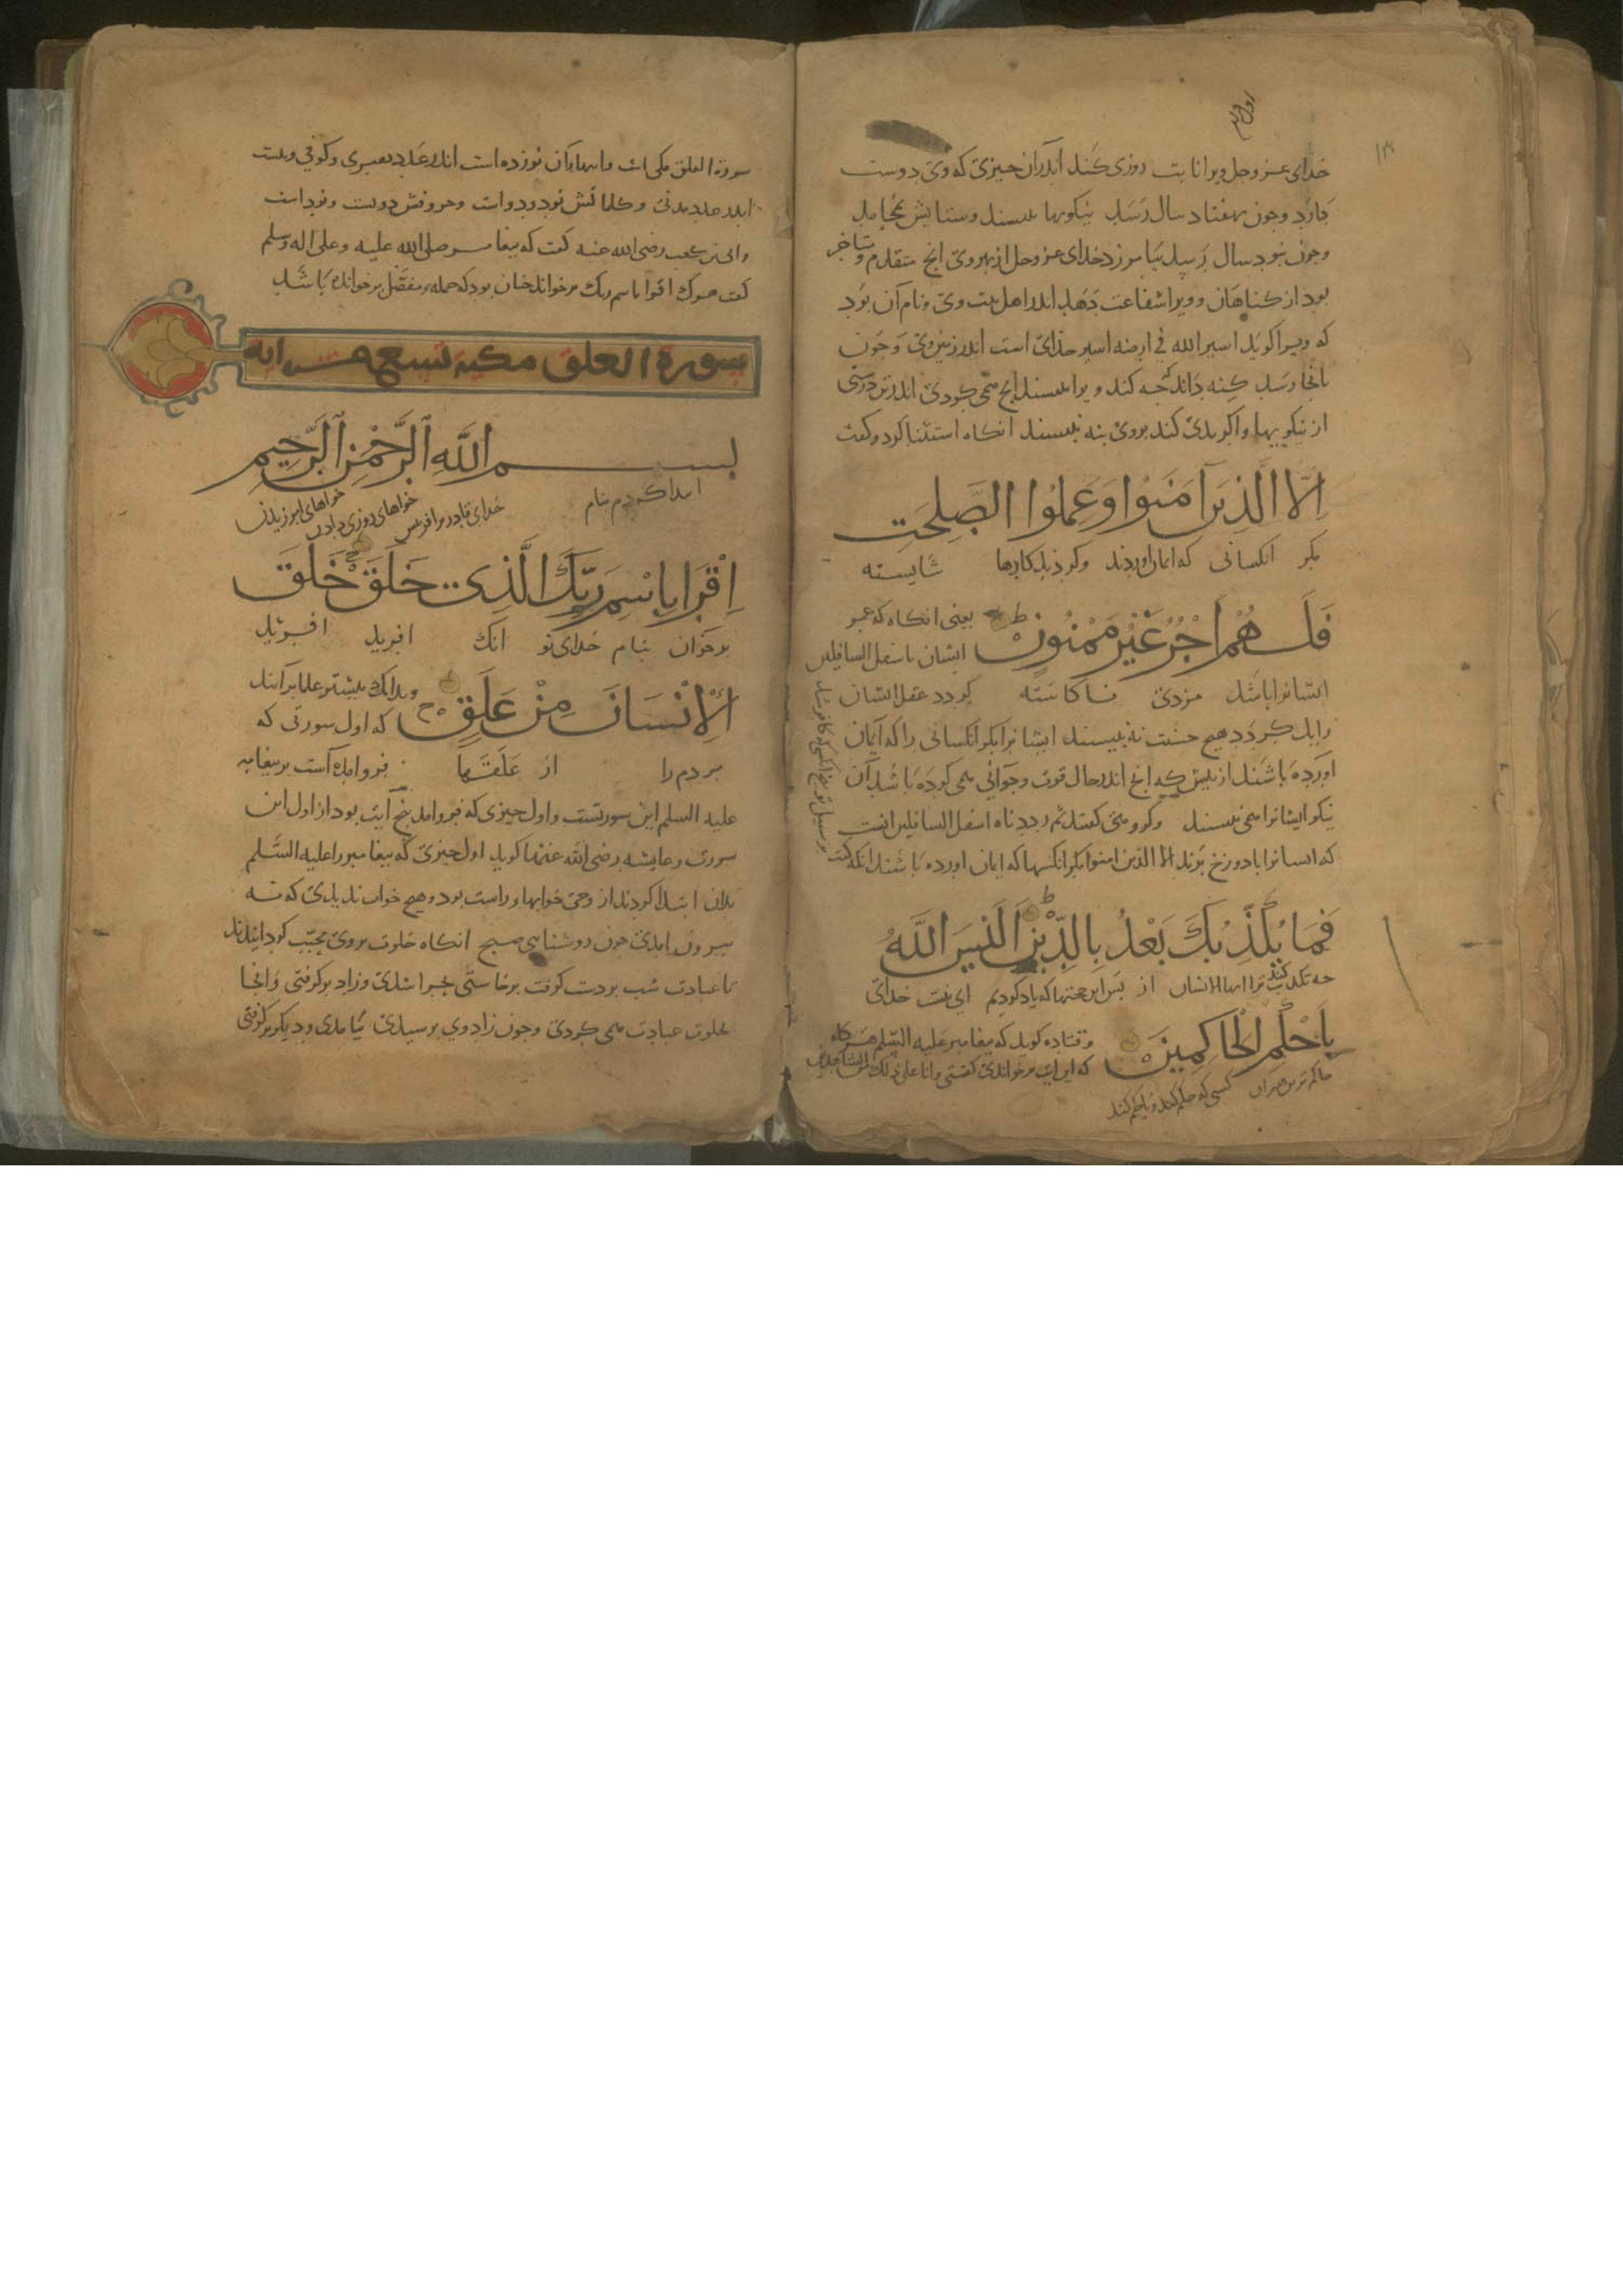 خدای عز و جل ویرا انابت روزی کند اندران چیزی که وی دوست
دارد وچون بهفتاد سال رسد نیکویها بنبیسند وستایش
وچون نبود سال رسد بیامرزد خدای عز وجل از بهر وی انچ متقدم و متاخر
بود از کناهان وویرا شفاعت دهد اندر اهل بیت وی ونام آن بود
که ویرا کوید اسیر الله فی ارضه اسیر خدای است اندر زمین وی وچون
بانجا رسد کنه داند کجه کند ویرا بنبیسند انچ همی کردی اندر تن درستی
از نیکویها واکر بدی کند بروی بنه نبیسند انکاه استثنا کرد وکفت
اِلَّا الَّذِينَ آمَنُوا وَعَمِلُوا الصّٰلِحٰتِ
مکر انکسانی که ایمان اوردند وکردند کارها شایسته
فَلَهُمْ اَجْرٌ غَيْرُ مَمْنُونٍ ط یعنی انکاه که عمر
ایشان باسفل السافلین
ایشانرا باشد مزدی ناکاسته کردد عقل ایشان
زایل کردد هیچ حسنت نه نبیسند ایشانرا مکر انکسانی را که ایمان
اورده باشند از پیش که انچ اندر حال قوت وجوانی همی کرده باشد آن
نیکو ایشانرا همی نبیسند وکروهی کفتند ثم رددناه اسفل السافلین انست
که ایشانرا بدوزخ برند الا الذین امنوا مکر انکسها که ایمان اورده باشند انکه کفت
بر سبیل توبیخ انکسی که کافر شد
فَمَا يُكَذِّبُكَ بَعْدُ بِالدِّينِ ط اَلَيْسَ اللّٰهُ
چه تکذیب کند ترا ایها الانسان از پس این حجتها که یاد کردیم ای نیست خدای
بِاَحْكَمِ الْحَاكِمِينَ وقتاده کوید که پیغامبر علیه السلم هر کاه
که این ایت بر خواندی کفتی وانا علی ذلک من الشاهدین
حاکم ترین همه‌ران کسی که حکم کند ویا حکم کند
سورة العلق مکی است وایتهاء آن نوزده است اندر عدد بصری وکوفی وبیست
اندر عدد مدنی وکلماتش نود ودو است وحروفش دویست ونود است
وابی بن کعب رضی الله عنه کفت که پیغامبر صلی الله علیه وعلی اله وسلم
کفت هر که اقرا باسم ربک بر خواند چنان بود که جمله مفصل بر خوانده باشد
سورة العلق مكية تسع عشر اية
بِسْمِ اللّٰهِ الرَّحْمٰنِ الرَّحِيمِ
ابتدا کردم بنام خدای قادر بر افرینش خواهای روزی دادن خواهای امرزیدن
اِقْرَا بِاسْمِ رَبِّكَ الَّذِي خَلَقَ ج خَلَقَ
بر خوان بنام خدای تو انک افرید افرید
الْاِنْسَانَ مِنْ عَلَقٍ ج وبدانک بیشتر علما برآنند
که اول سورتی که
مردم را از علقتها فرو امده است بر پیغامبر
علیه السلم این سورتست واول چیزی که فرو امد پنج آیت بود از اول این
سورت وعایشه رضی الله عنها کوید اول چیزی که پیغامبر را علیه السلم
بدان ابتدا کردند از وحی خوابهاء راست بود وهیچ خواب ندیدی که نه
بیرون امدی چون روشنایی صبح انکاه خلوت بروی محبّب کردانیدند
تا عبادت شب بر دست کرفت برخاستی بحرا شدی وزاد برکرفتی وانجا
بخلوت عبادت همی کردی وچون زاد وی برسیدی بیامدی ودیکر برکرفتی